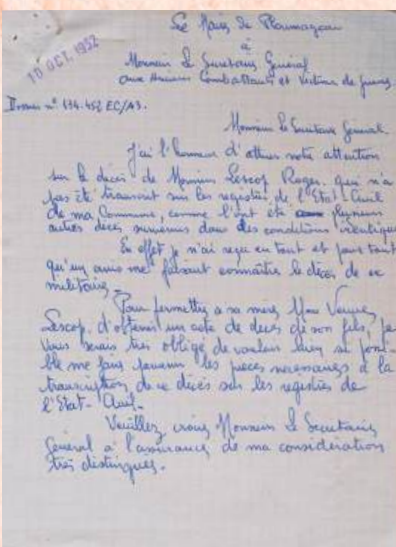 Le Maire de Ploumagoar
à
10 OCT. 1952
Monsieur le Secrétaire Général
aux Anciens Combattants et Victimes de guerre
Dossier n° 134.452 EC/A3.
Monsieur le Secrétaire Général
J'ai l'honneur d'attirer votre attention
sur le décès de Monsieur Lescop Roger, qui n'a
pas été transcrit sur les registres de l'Etat-Civil
de ma Commune, comme l'ont été plusieurs
autres décès survenus dans des conditions identiques
En effet je n'ai reçu en tout et pour tout
qu'un avis me faisant connaître le décès de ce
militaire.
Pour permettre à sa mère, Mme Veuve
Lescop, d'obtenir un acte de décès de son fils, je
vous serais très obligé de vouloir bien si possi-
ble me faire parvenir les pièces nécessaires à la
transcription de ce décès sur les registres de
l'Etat-Civil-
Veuillez croire Monsieur le Secrétaire
Général à l'assurance de ma considération
très distinguée.